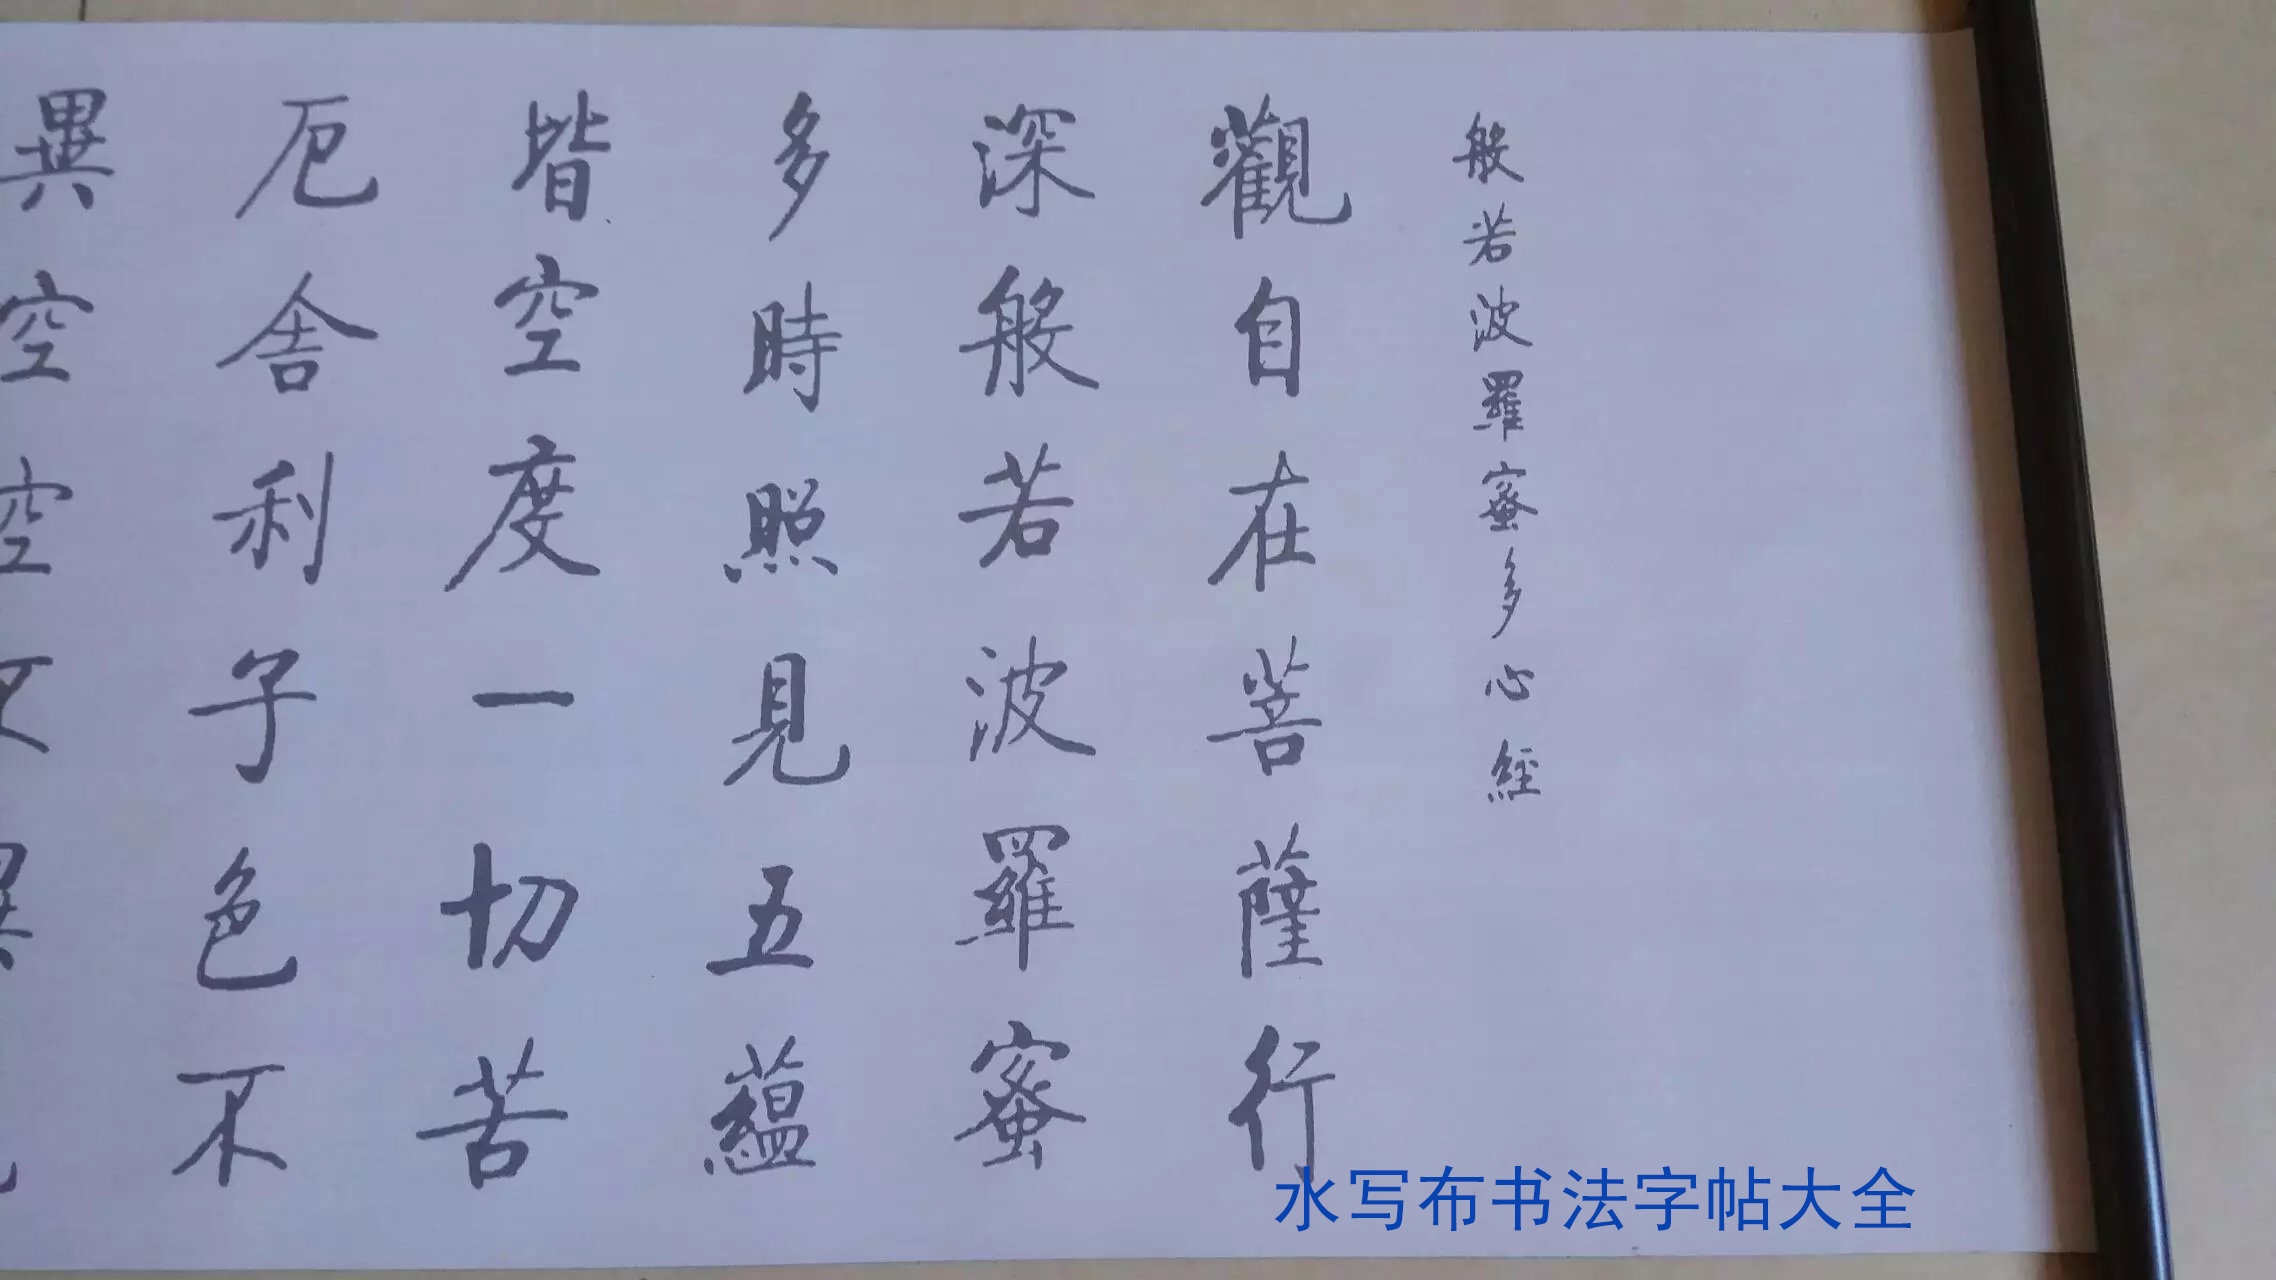 般若波羅蜜多心經
觀自在菩薩行
深般若波羅蜜
多時照見五蘊
皆空度一切苦
厄舍利子色不
異空空不異
水写布书法字帖大全